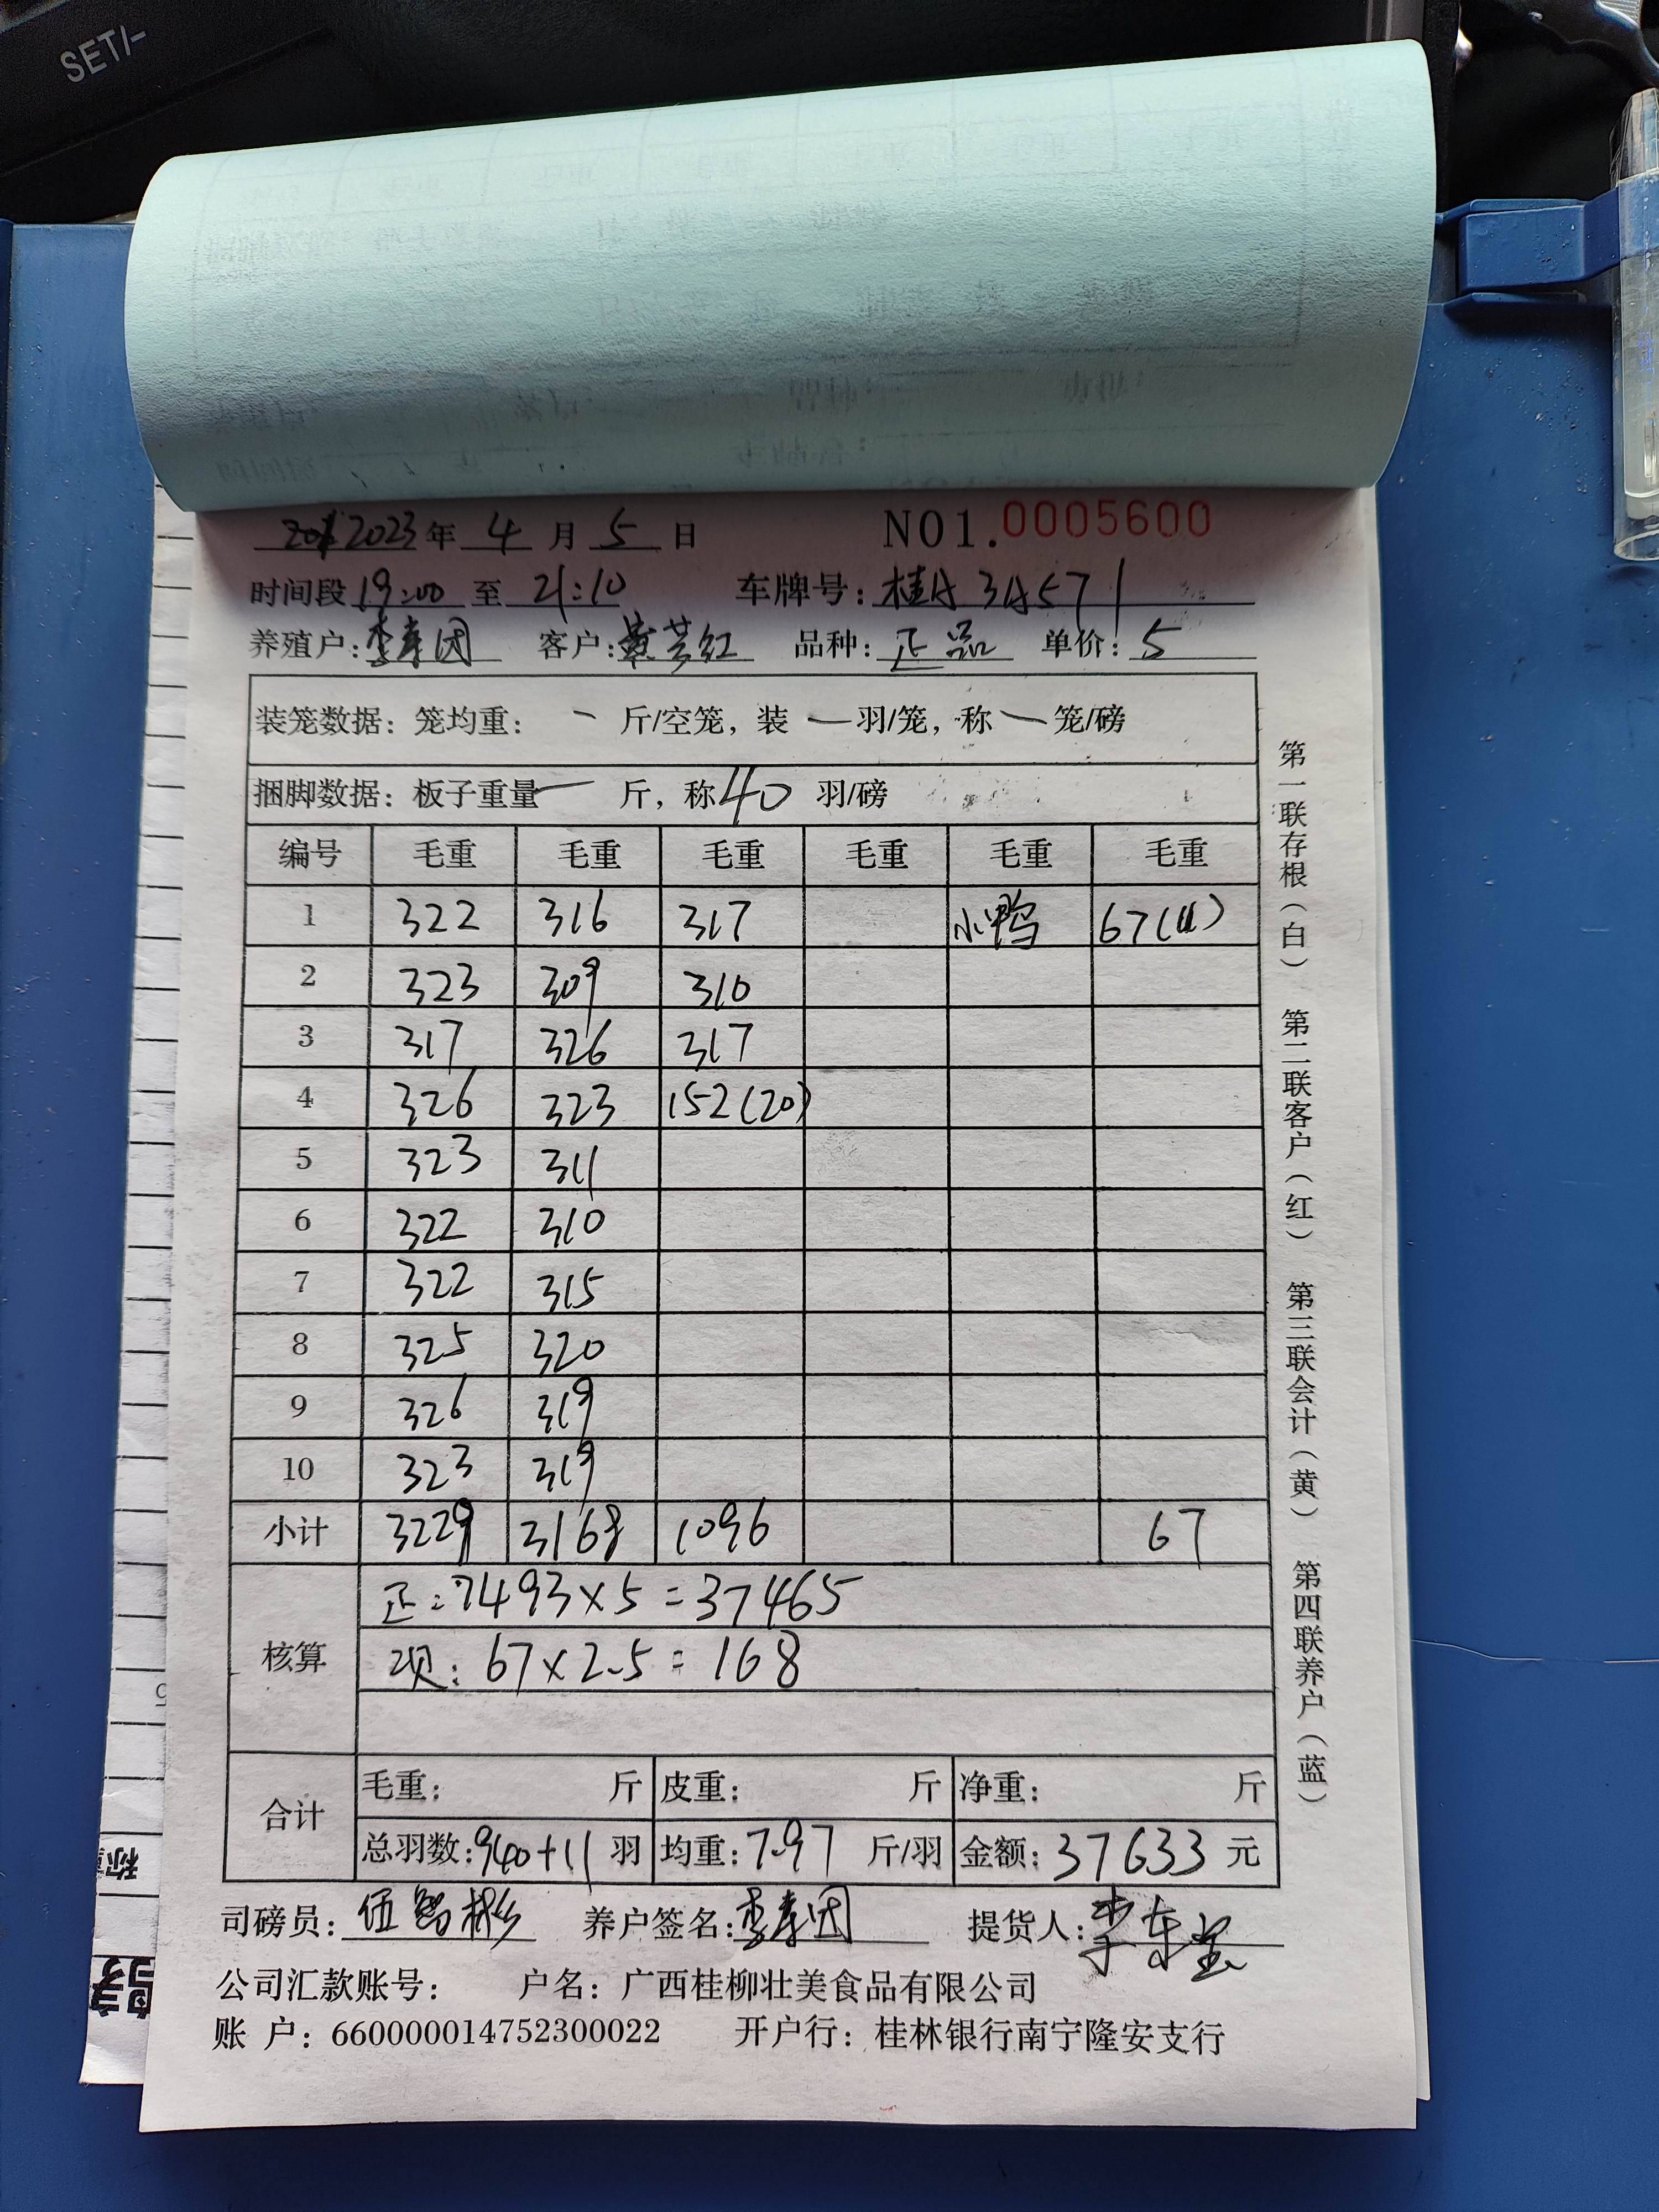 SET/-
2023年 4 月 5 日 NO1.0005600
时间段 19:00 至 21:10 车牌号: 桂A3A571
养殖户: 李春因 客户: 黄芸红 品种: 正品 单价: 5
装笼数据: 笼均重: — 斤/空笼, 装 — 羽/笼, 称 — 笼/磅
捆脚数据: 板子重量 — 斤, 称 40 羽/磅
编号 毛重 毛重 毛重 毛重 毛重 毛重
1 322 316 317 小鸭 67(11)
2 323 309 310
3 317 326 317
4 326 323 152(20)
5 323 311
6 322 310
7 322 315
8 325 320
9 326 319
10 323 319
小计 3229 3168 1096 67
核算 正: 7493×5=37465
项: 67×2.5=168
合计 毛重: 斤 皮重: 斤 净重: 斤
总羽数: 940+11 羽 均重: 7.97 斤/羽 金额: 37633 元
司磅员: 伍智彬 养户签名: 李春因 提货人: 李东
公司汇款账号: 户名: 广西桂柳壮美食品有限公司
账 户: 660000014752300022 开户行: 桂林银行南宁隆安支行
第一联存根(白) 第二联客户(红) 第三联会计(黄) 第四联养户(蓝)